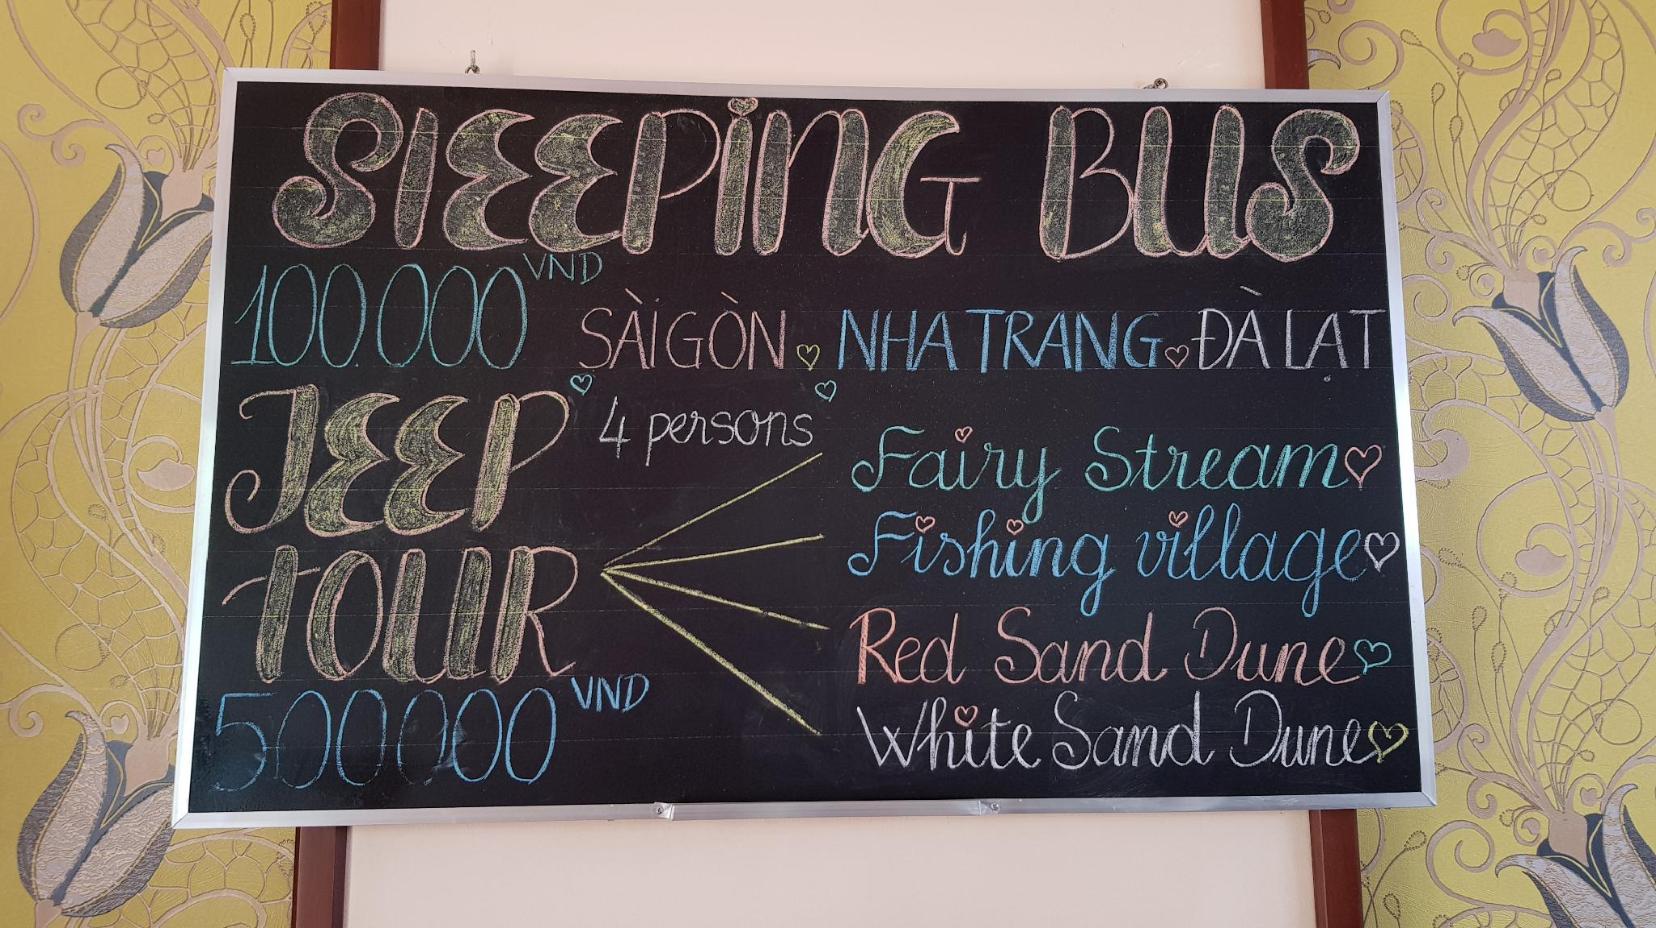 SlEEPiNG BUS
100.000 VND
SÀIGÒN NHA TRANG ĐÀ LẠT
JEEP 4 persons
TOUR
500000 VND
Fairy Stream
Fishing village
Red Sand Dune
White Sand Dune